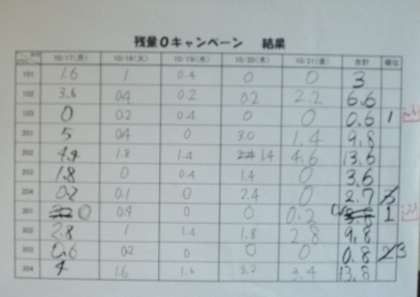 残量0キャンペーン 結果
10/17(月) 10/18(火) 10/19(水) 10/20(木) 10/21(金) 合計 順位
101 1.6 1 0.4 0 0 3
102 3.6 0.4 0.2 0.2 2.2 6.6
103 0 0.2 0.4 0 0 0.6 1
201 5 0.4 0 3.0 1.4 9.8
202 4.4 1.8 1.4 1.4 4.6 13.6
203 1.8 0 0.4 1.4 0 3.6
204 0.2 0.1 0 2.4 0 2.7
301 0 0.4 0 0 0.2 1
302 2.8 1 1.4 1.8 2.8 9.8
303 0.6 0.2 0 0 0 0.8 3
304 4 1.6 1.6 3.2 3.4 13.8